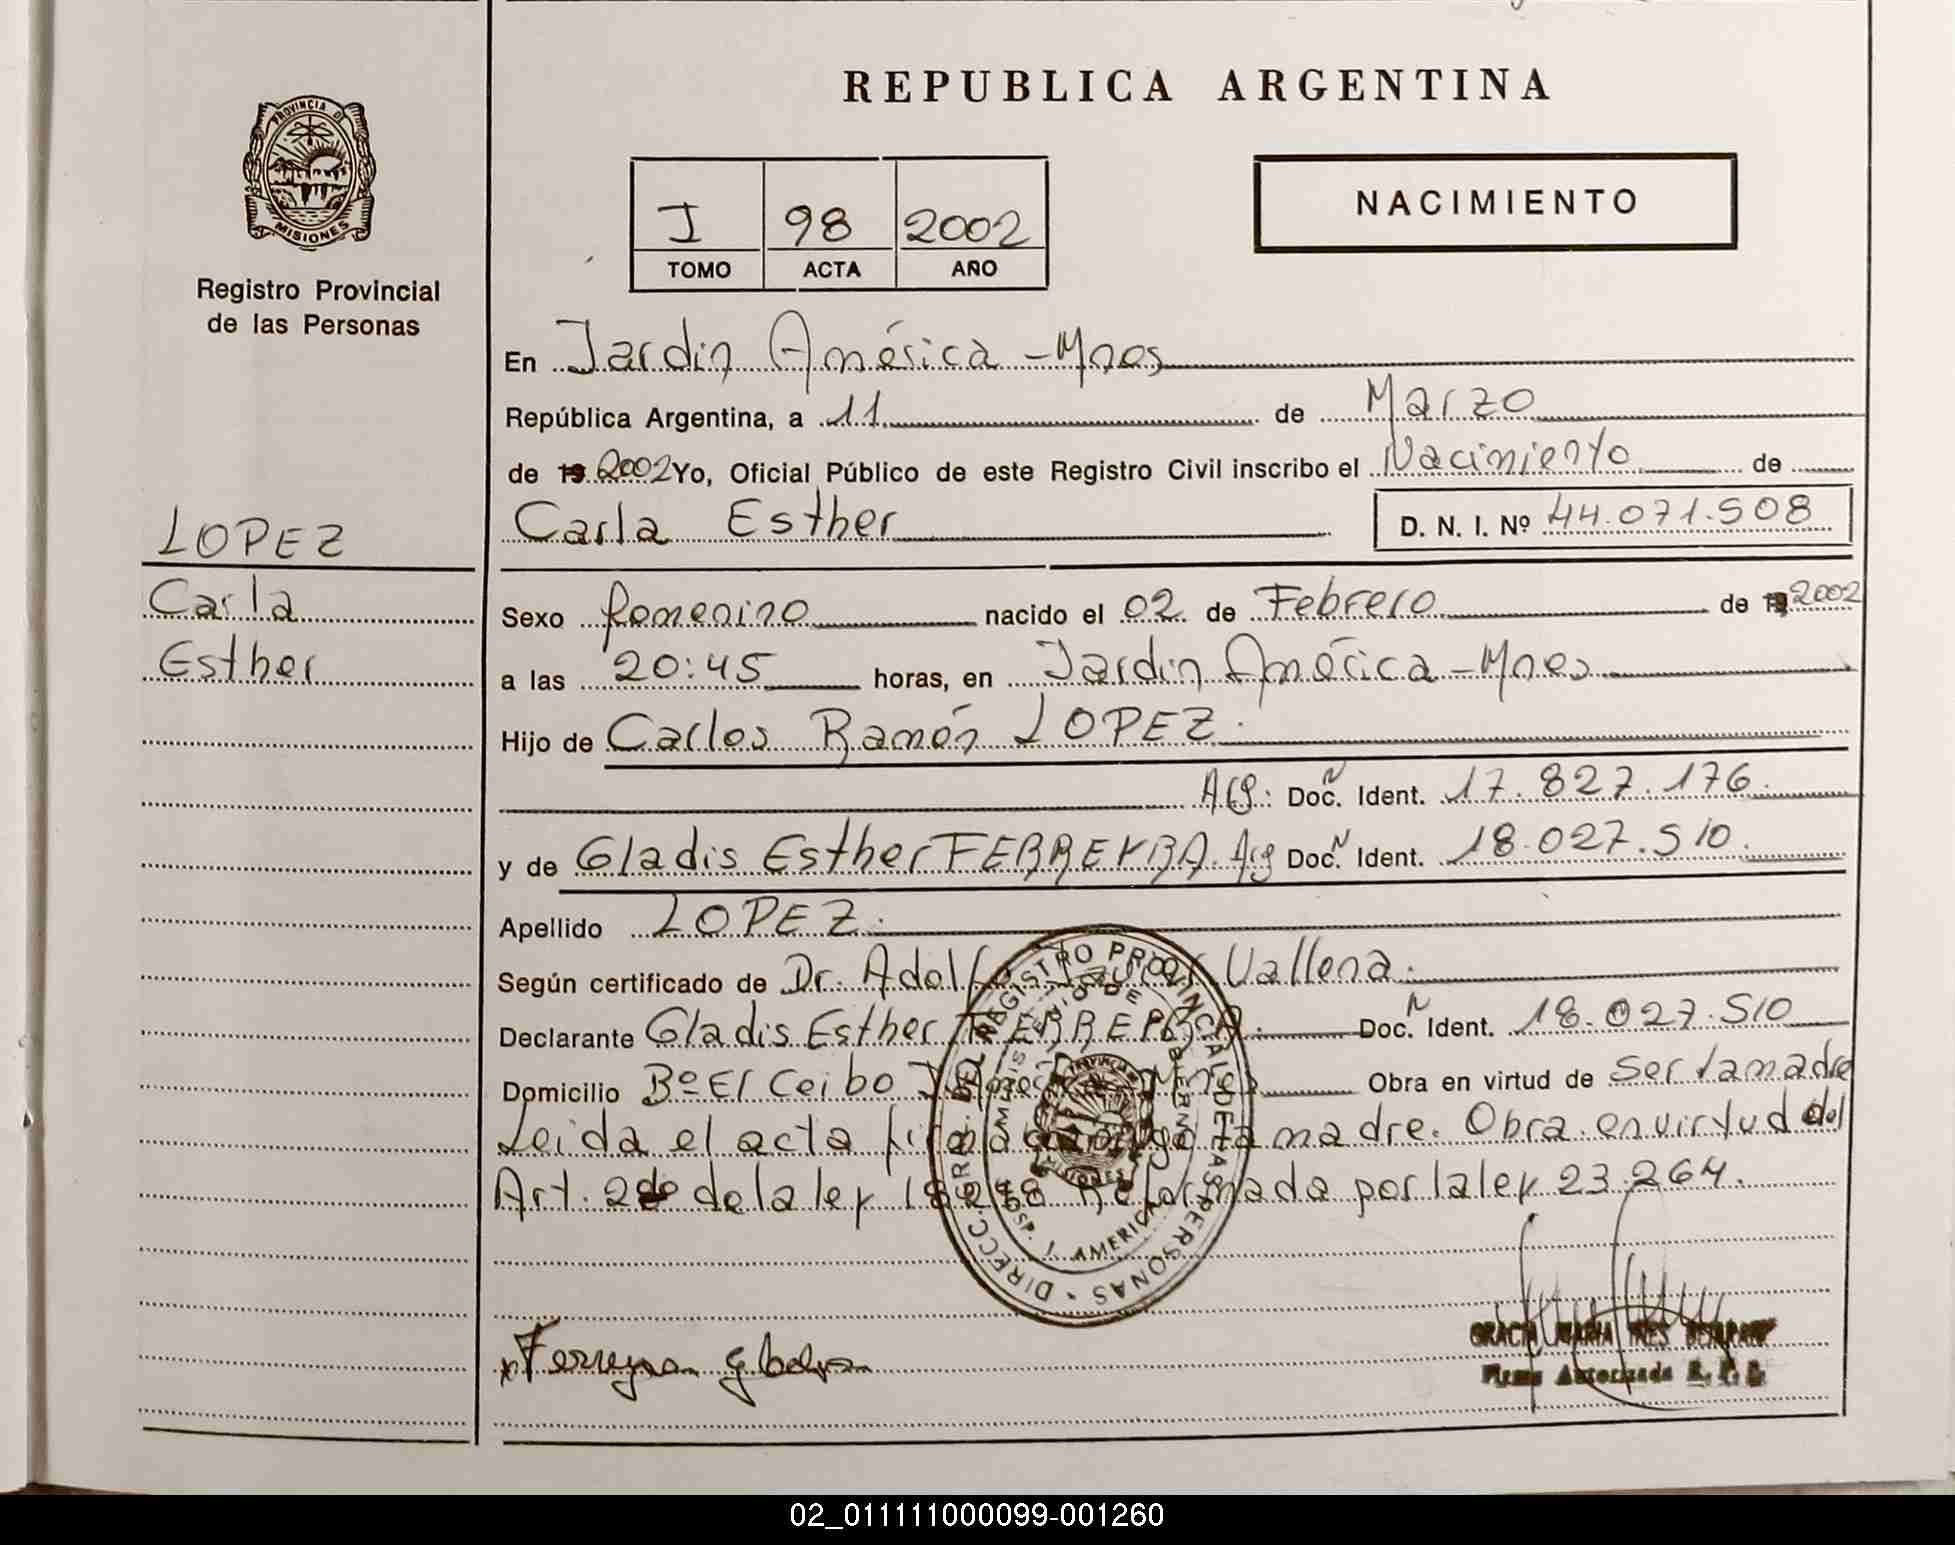 REPUBLICA ARGENTINA
PROVINCIA DE
MISIONES
Registro Provincial
de las Personas
I 98 2002
TOMO ACTA AÑO
NACIMIENTO
En Jardin América - Mnes
República Argentina, a 11 de Marzo
de 19 2002 Yo, Oficial Público de este Registro Civil inscribo el Nacimiento de
Carla Esther D. N. I. Nº 44.071.508
LOPEZ
Carla
Esther
Sexo femenino nacido el 02 de Febrero de 19 2002
a las 20:45 horas, en Jardin América - Mnes
Hijo de Carlos Ramón LOPEZ.
Arg. Doc. N Ident. 17.827.176.
y de Gladis Esther FERREYRA. Arg Doc. N Ident. 18.027.510.
Apellido LOPEZ.
Según certificado de Dr. Adolfo Vallena.
Declarante Gladis Esther FERREYRA. Doc. N Ident. 18.027.510
Domicilio Bº El Ceibo Obra en virtud de ser la madre
Leida el acta firma la madre. Obra en virtud del
Art. 2do de la ley Reformada por la ley 23.264.
DIRECC. GRAL. DEL REGISTRO PROVINCIAL DE LAS PERSONAS
AMERICA
Ferreyra gladys
GRACIA MARIA INES
Firma Autorizada R. P. P.
02_011111000099-001260